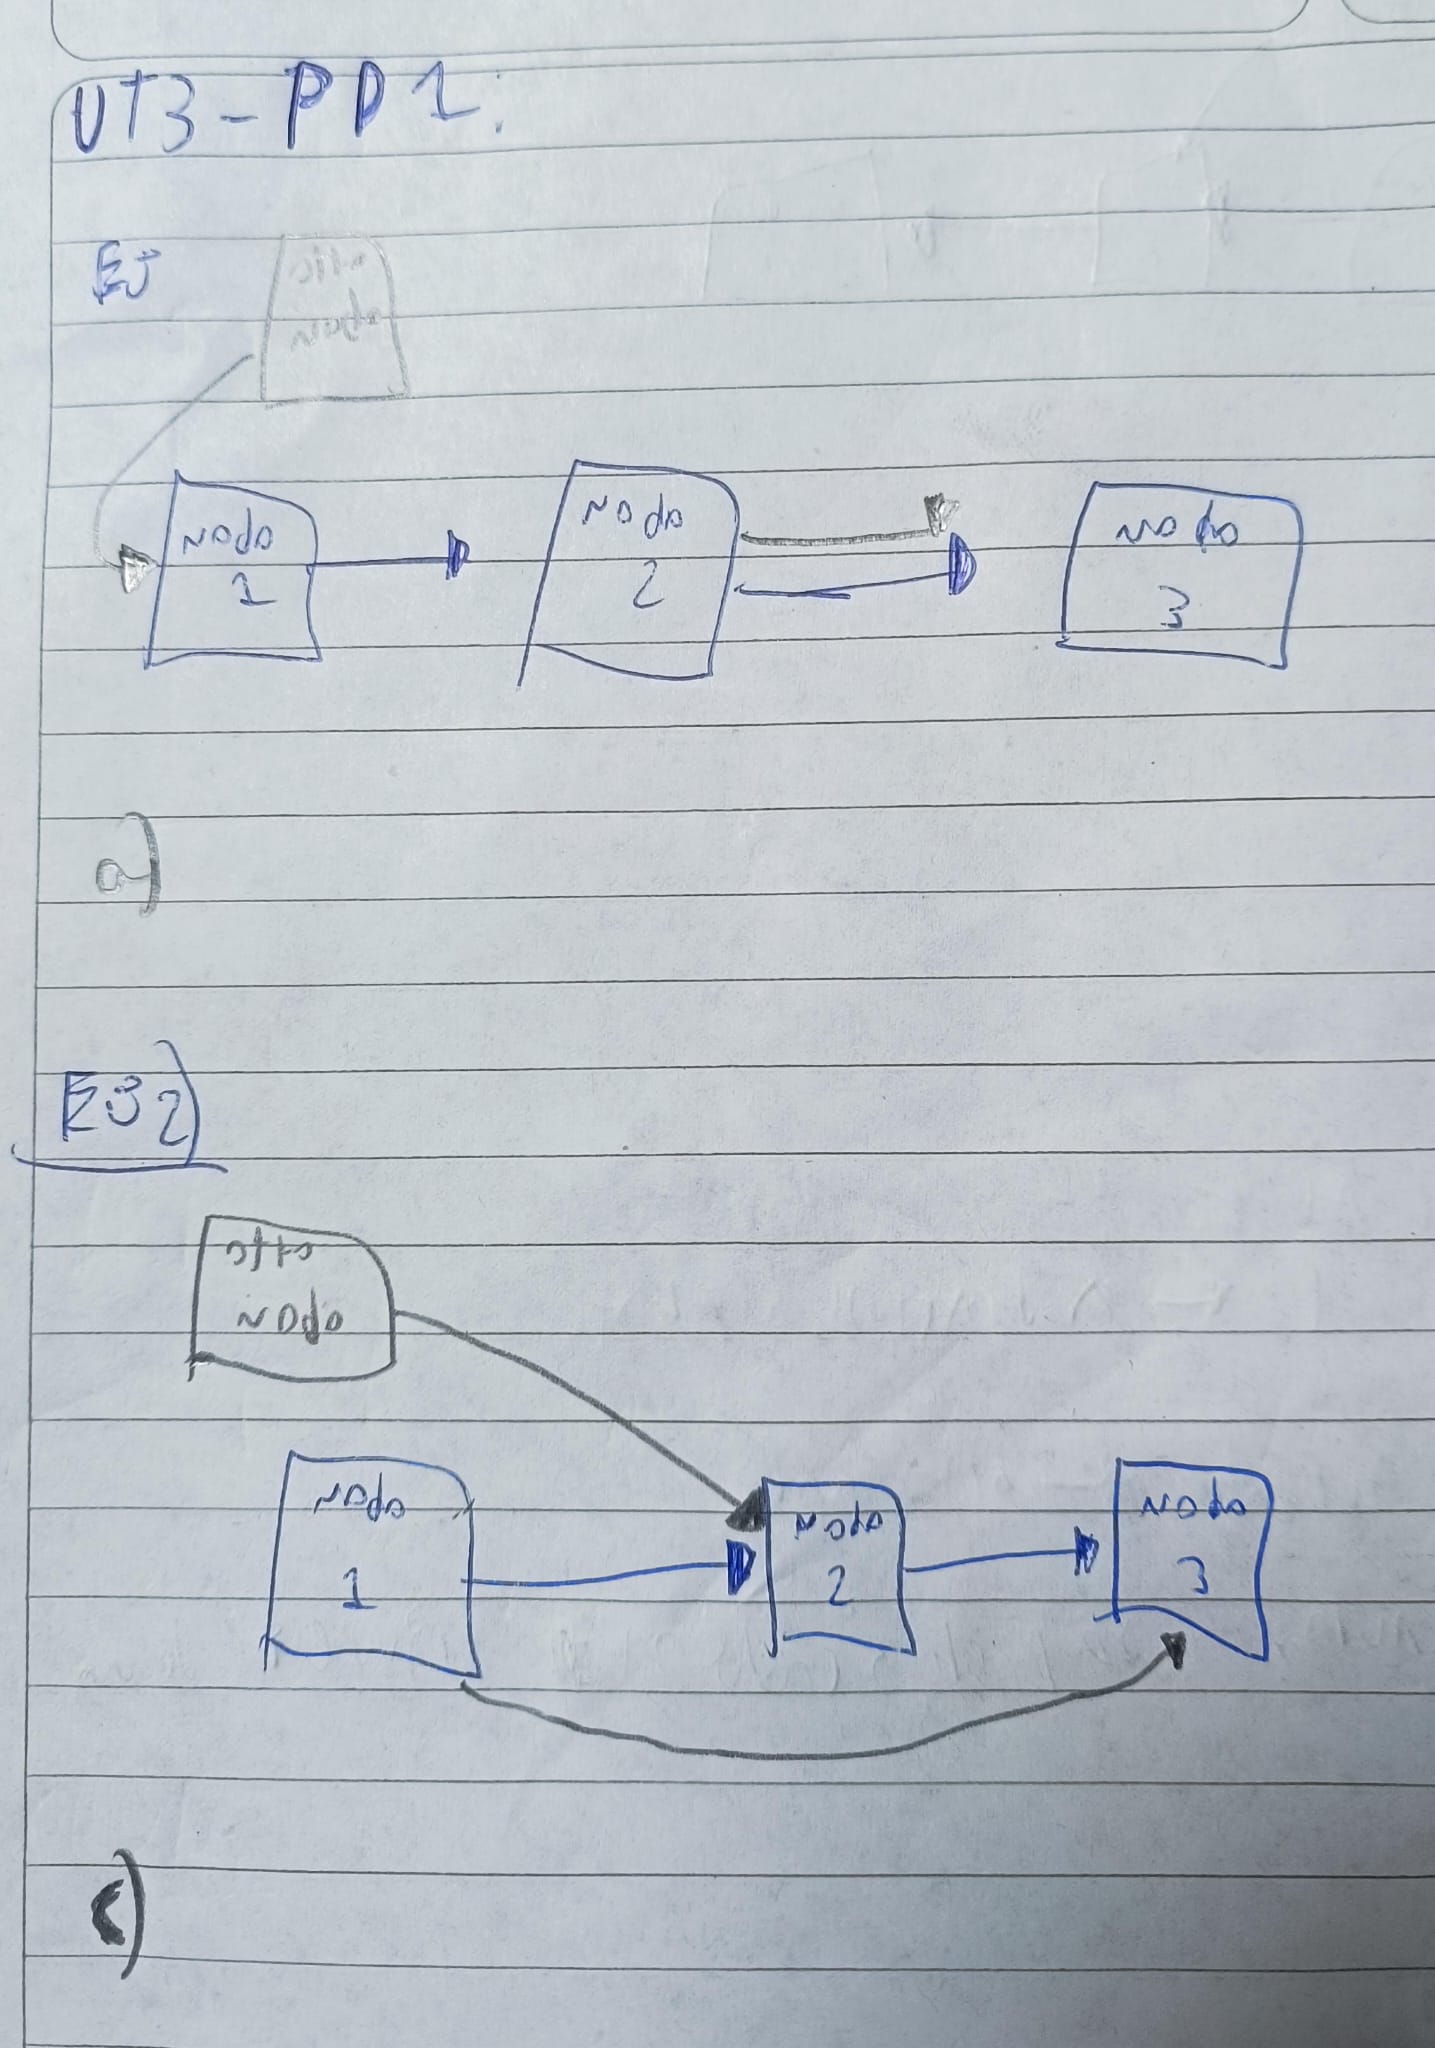 UT3-PD1:
EJ
otro
nodo
nodo
1
nodo
2
nodo
3
a)
EJ2)
otro
nodo
nodo
1
nodo
2
nodo
3
c)